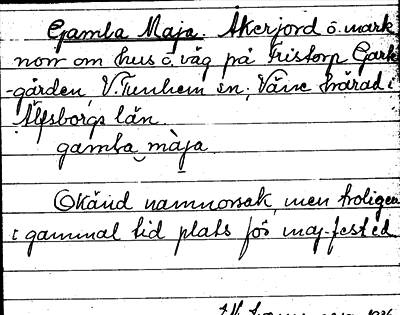 Gamla Maja. Åkerjord o. mark
norr om hus o. väg på Tristorp Gark
-gården, V. Tunhem sn; Väne härad i
Älfsborgs län.
gamla màja
Okänd namnorsak, men troligen
i gammal tid plats för maj-fest ed